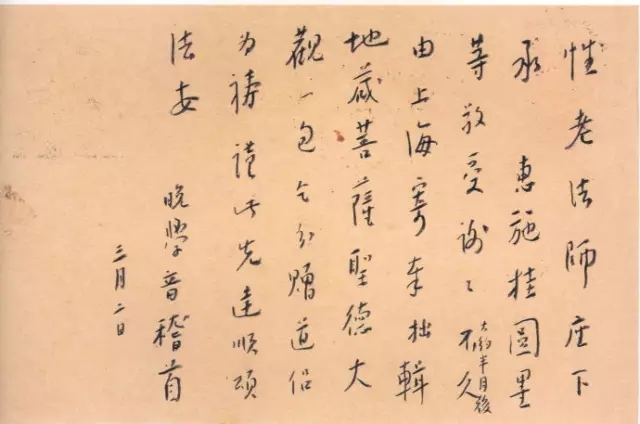 性老法師座下
承 惠施桂圓墨
等敬受謝〻不久
大約半月後
由上海寄奉拙輯
地藏菩薩聖德大
觀一包乞分贈道侶
為禱謹此先達順頌
法安
晚學音稽首
三月二日